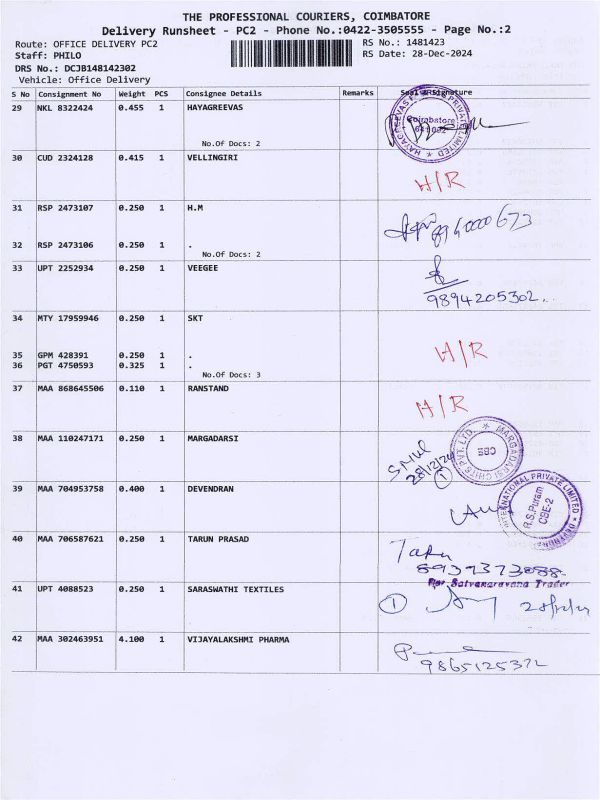 THE PROFESSIONAL COURIERS, COIMBATORE
Delivery Runsheet - PC2 - Phone No.:0422-3505555 - Page No.:2
Route: OFFICE DELIVERY PC2 RS No.: 1481423
Staff: PHILO RS Date: 28-Dec-2024
DRS No.: DCJB148142302
Vehicle: Office Delivery
S No Consignment No Weight PCS Consignee Details Remarks Seal & Signature
29 NKL 8322424 0.455 1 HAYAGREEVAS
Coimbatore
641 002
No.Of Docs: 2
30 CUD 2324128 0.415 1 VELLINGIRI
H/R
31 RSP 2473107 0.250 1 H.M
32 RSP 2473106 0.250 1 .
No.Of Docs: 2
33 UPT 2252934 0.250 1 VEEGEE
9894205302
34 MTY 17959946 0.250 1 SKT
H/R
35 GPM 428391 0.250 1 .
36 PGT 4750593 0.325 1 .
No.Of Docs: 3
37 MAA 868645506 0.110 1 RANSTAND
H/R
38 MAA 110247171 0.250 1 MARGADARSI
MARGADARSI CHITS PVT. LTD.
CBE
28/12/24
1
39 MAA 704953758 0.400 1 DEVENDRAN
INTERNATIONAL PRIVATE LIMITED
R.S.Puram
CBE-2
40 MAA 706587621 0.250 1 TARUN PRASAD
8939373088
For Satyanarayana Trader
41 UPT 4088523 0.250 1 SARASWATHI TEXTILES
1 28/12/24
42 MAA 302463951 4.100 1 VIJAYALAKSHMI PHARMA
9865125372